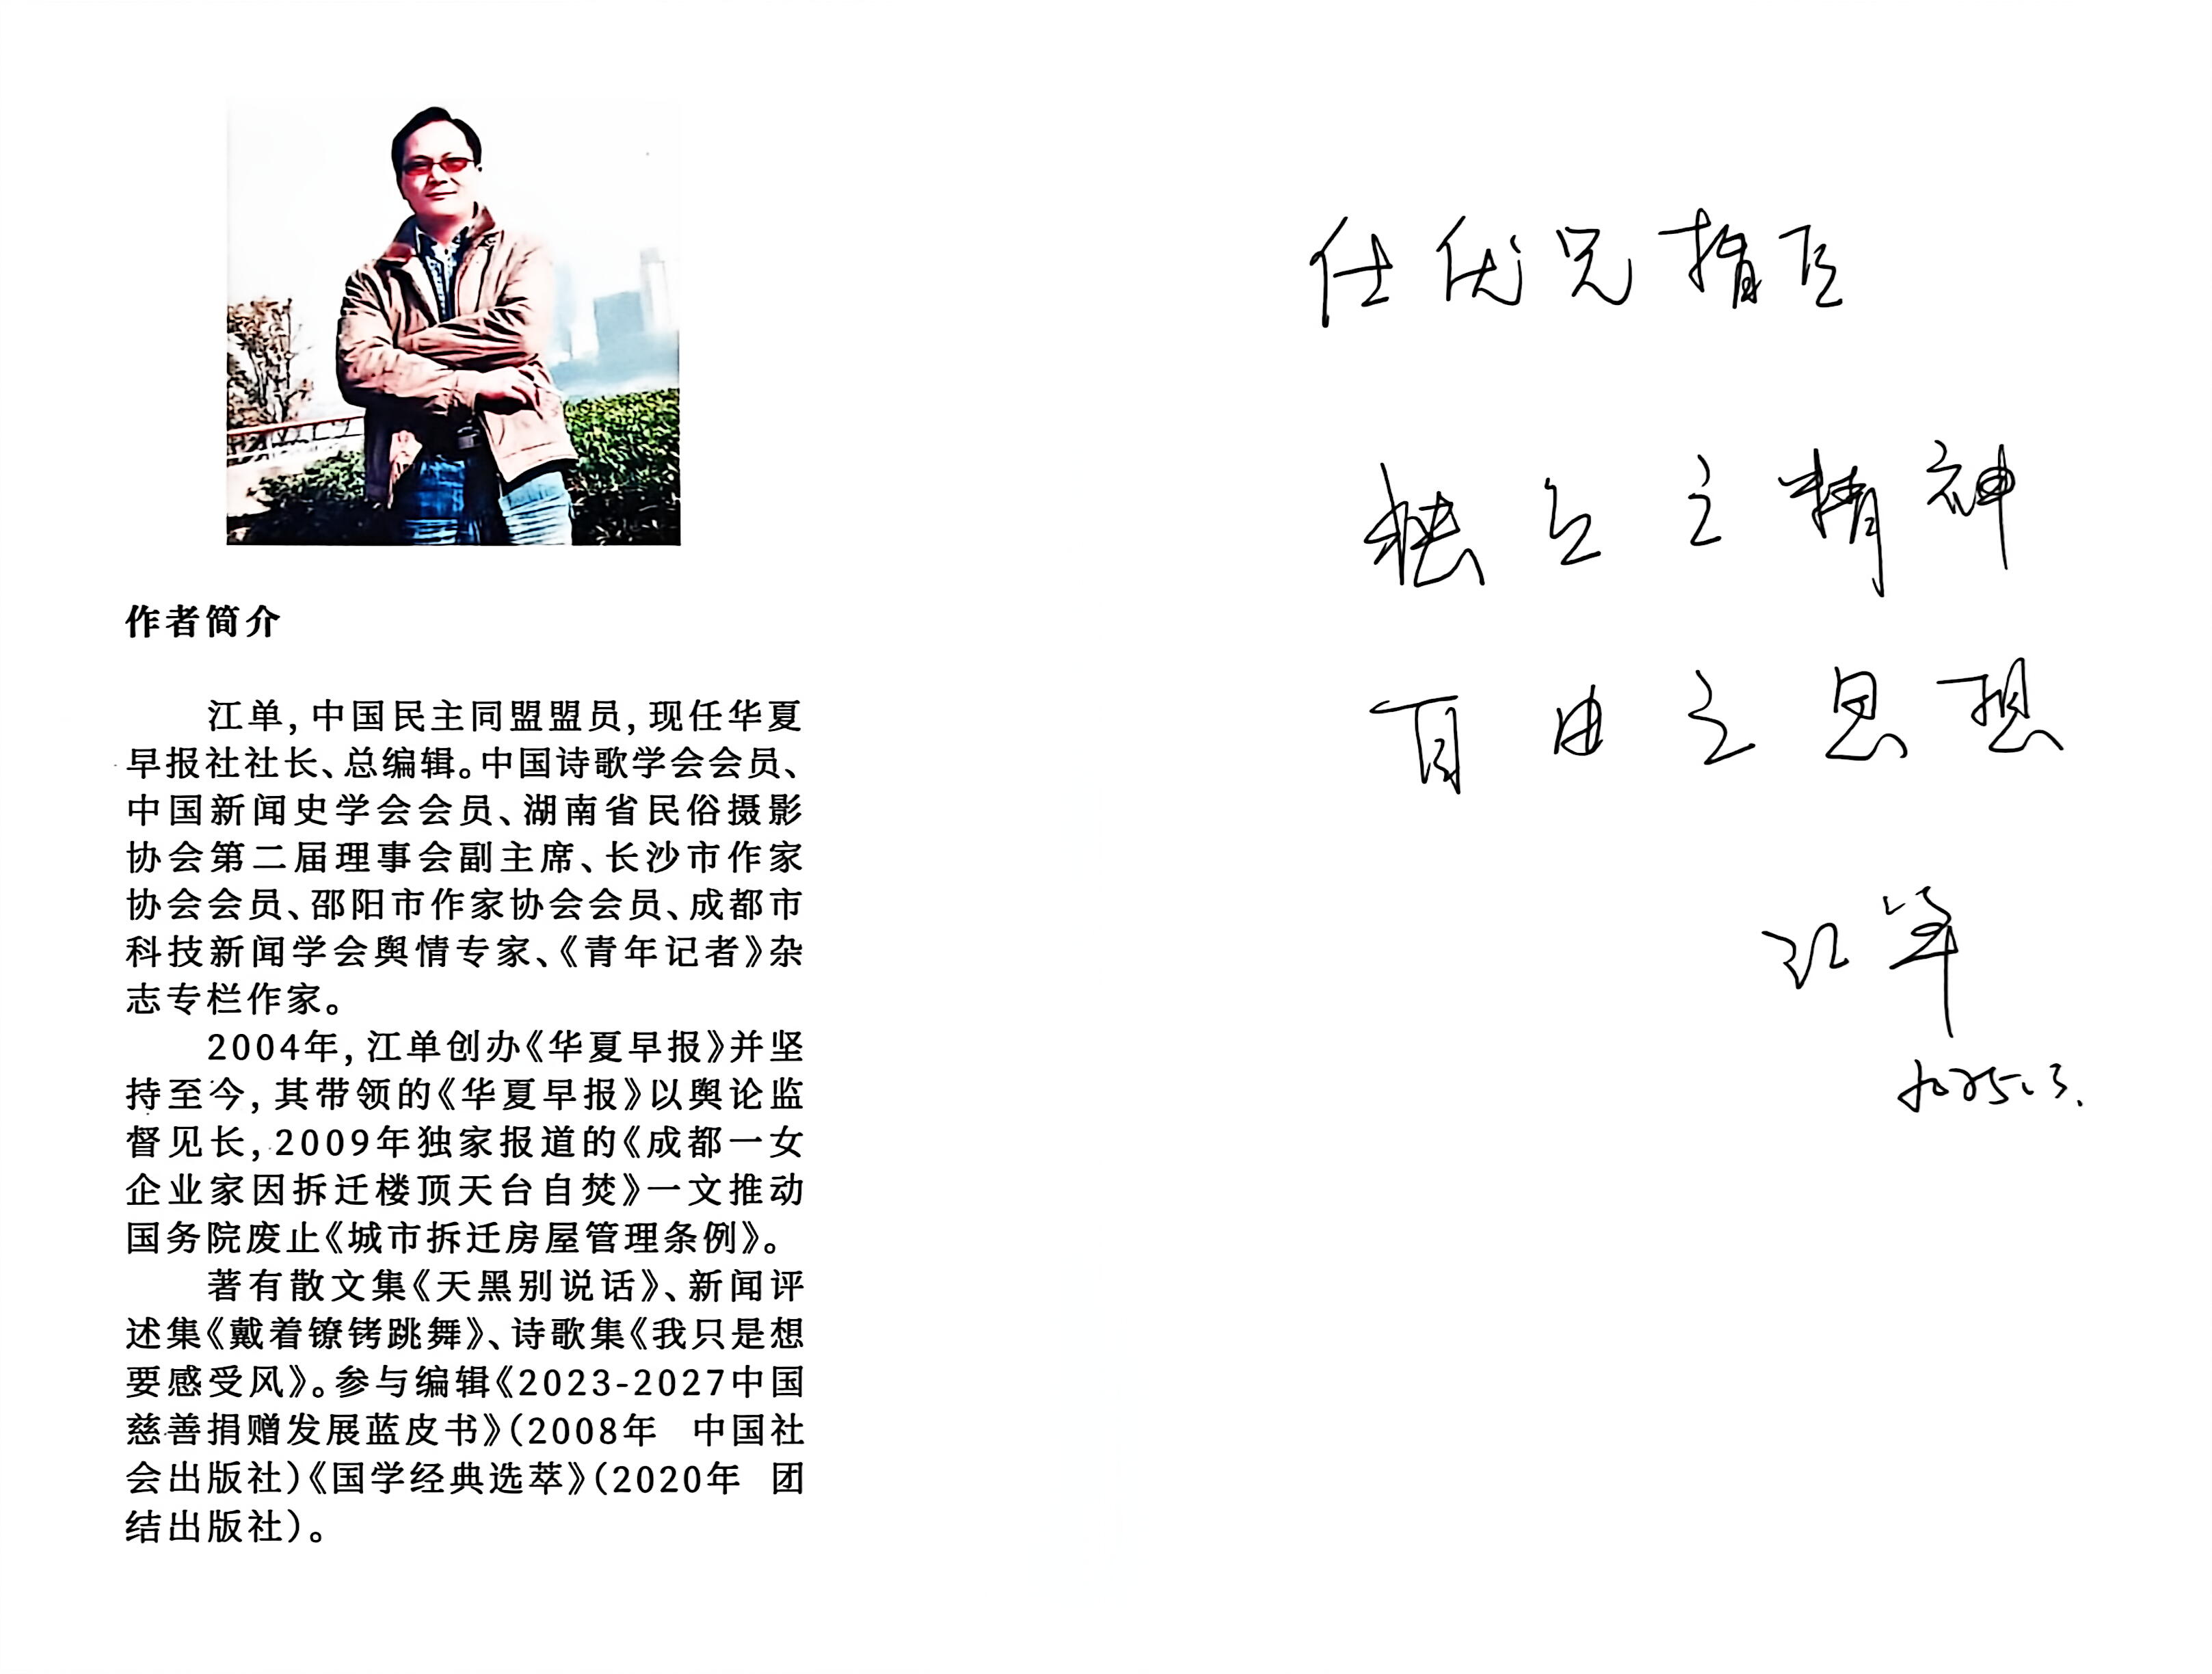 作者简介
江单，中国民主同盟盟员，现任华夏
早报社社长、总编辑。中国诗歌学会会员、
中国新闻史学会会员、湖南省民俗摄影
协会第二届理事会副主席、长沙市作家
协会会员、邵阳市作家协会会员、成都市
科技新闻学会舆情专家、《青年记者》杂
志专栏作家。
2004年，江单创办《华夏早报》并坚
持至今，其带领的《华夏早报》以舆论监
督见长，2009年独家报道的《成都一女
企业家因拆迁楼顶天台自焚》一文推动
国务院废止《城市拆迁房屋管理条例》。
著有散文集《天黑别说话》、新闻评
述集《戴着镣铐跳舞》、诗歌集《我只是想
要感受风》。参与编辑《2023-2027中国
慈善捐赠发展蓝皮书》（2008年 中国社
会出版社）《国学经典选萃》（2020年 团
结出版社）。
仕优兄指正
独立之精神
自由之思想
江单
2025.3.